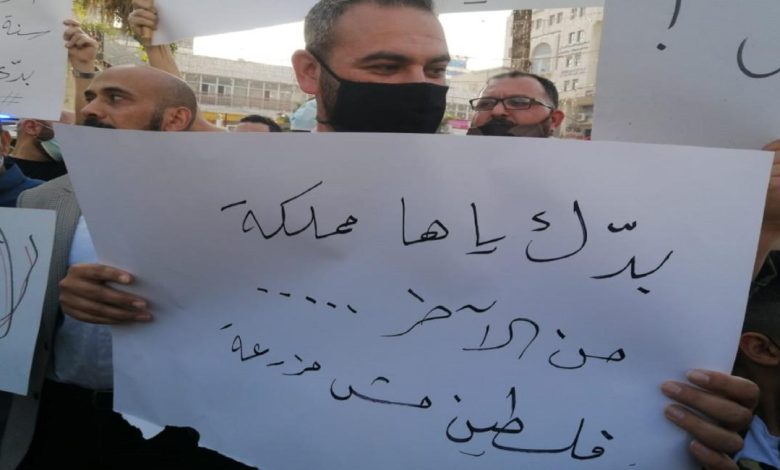 سنة
بدك
#
!
بدّك ياها مملكة
من الآخر .....
فلسطين مش مزرعة